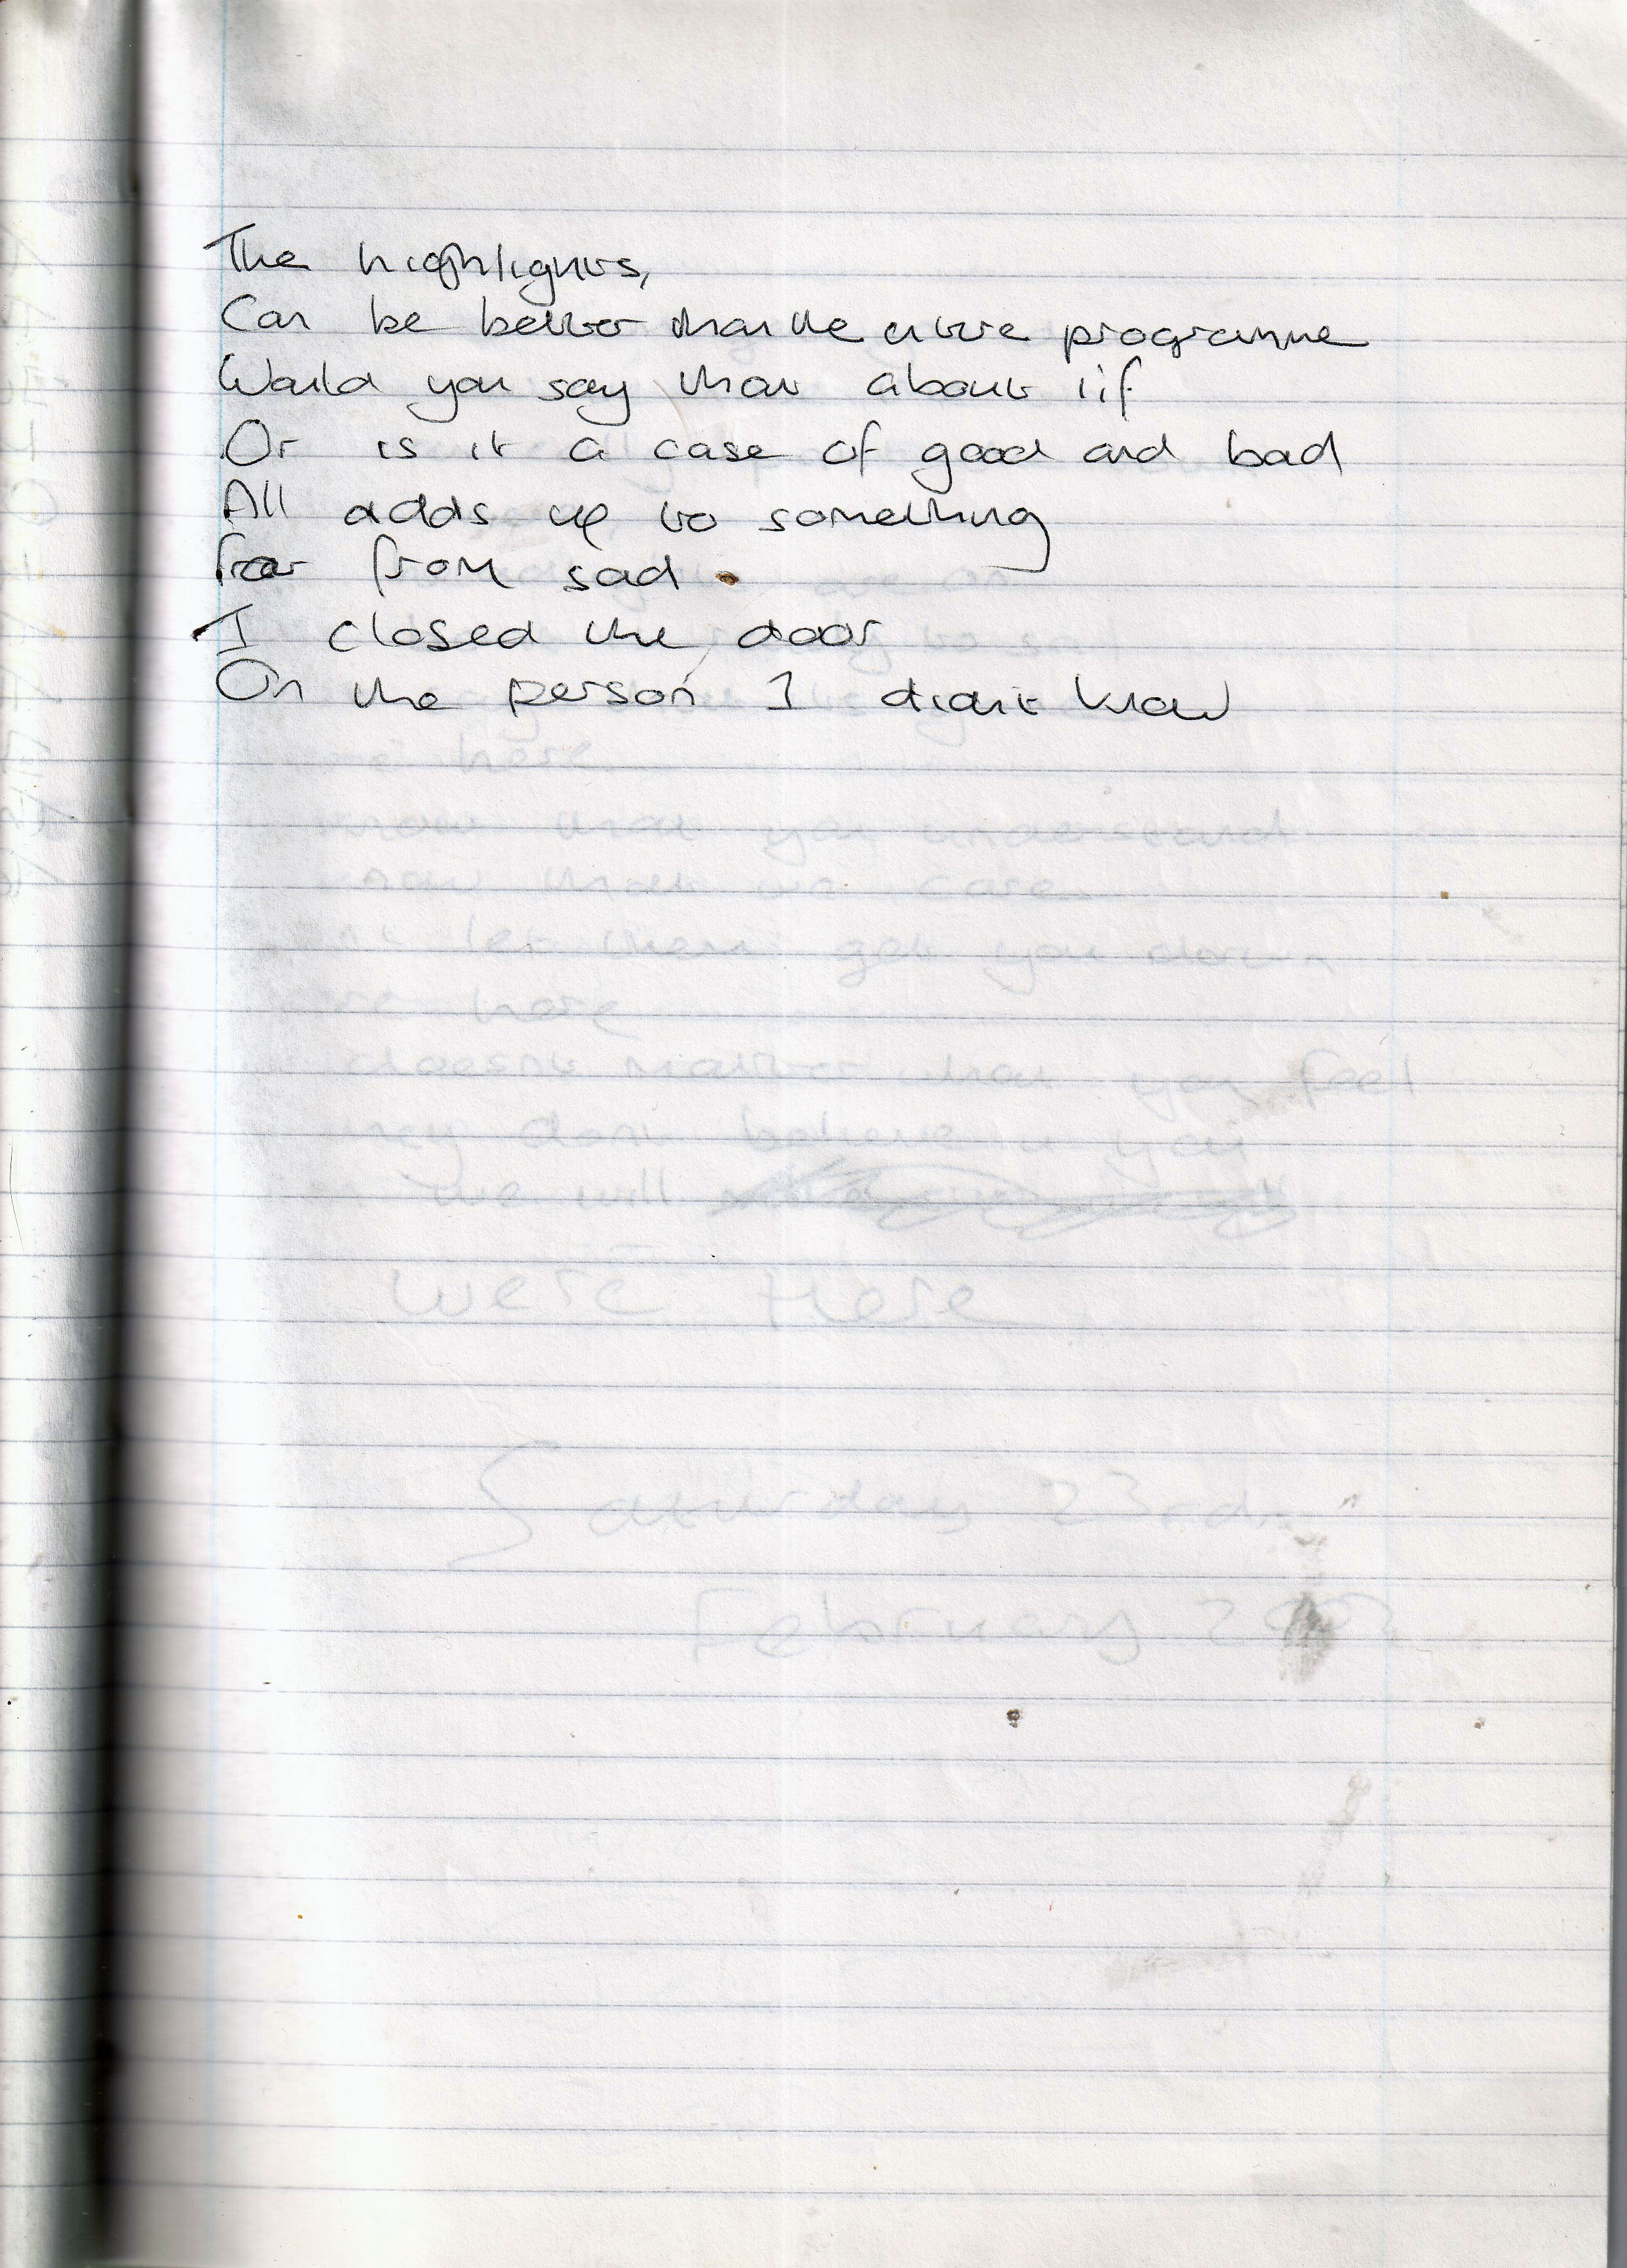 The highlights,
Can be better than the entire programme
Would you say that about lif
Or is it a case of good and bad
All adds up to something
far from sad.
I closed the door
On the person I didnt know
here
know that you understand
that we care
let them get you down
here
doesnt matter what you feel
dont believe in you
we will
were Here
Saturday 23rd
February